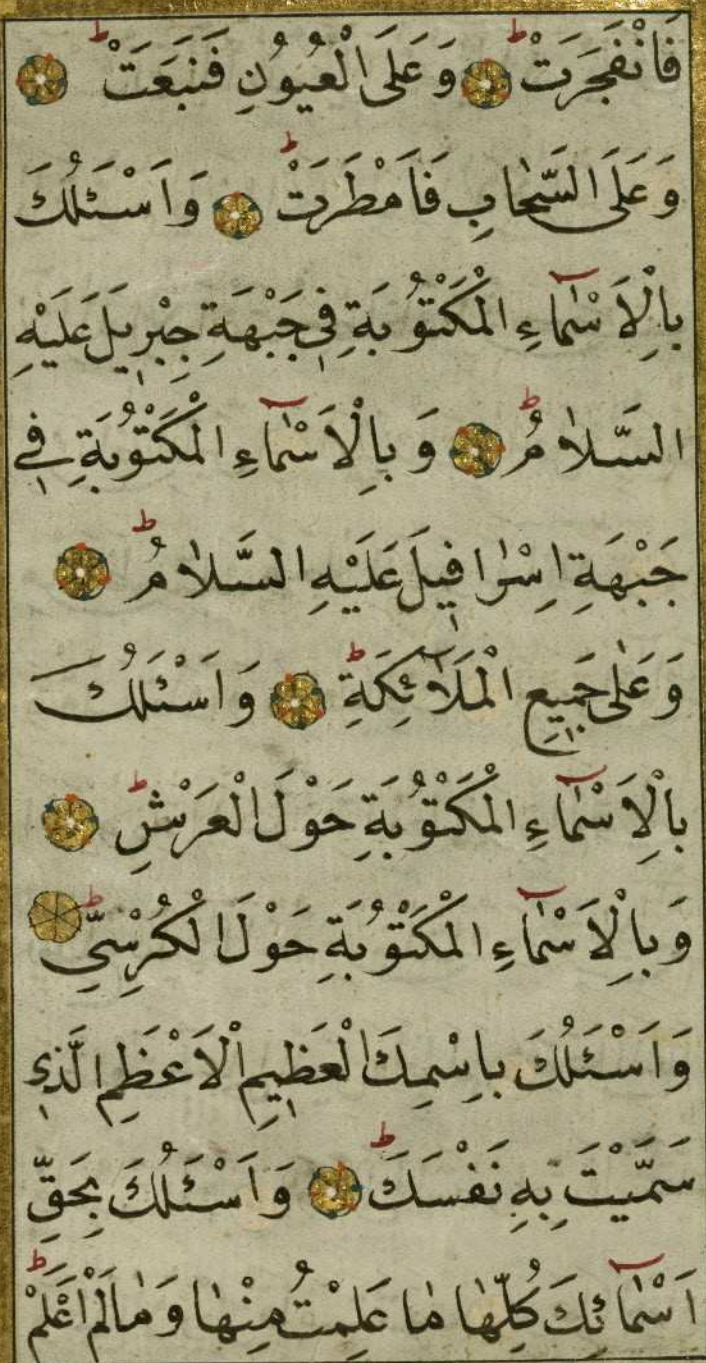 فَانْفَجَرَتْ ط وَعَلَى الْعُيُونِ فَنَبَعَتْ ط
وَعَلَى السَّحَابِ فَاَمْطَرَتْ ط وَاَسْئَلُكَ
بِالْاَسْمَاءِ الْمَكْتُوبَةِ فِي جَبْهَةِ جِبْرِيلَ عَلَيْهِ
السَّلَامُ ط وَبِالْاَسْمَاءِ الْمَكْتُوبَةِ فِي
جَبْهَةِ اِسْرَافِيلَ عَلَيْهِ السَّلَامُ ط
وَعَلٰى جَمِيعِ الْمَلٰٓائِكَةِ ط وَاَسْئَلُكَ
بِالْاَسْمَاءِ الْمَكْتُوبَةِ حَوْلَ الْعَرْشِ ط
وَبِالْاَسْمَاءِ الْمَكْتُوبَةِ حَوْلَ الْكُرْسِيِّ ط
وَاَسْئَلُكَ بِاسْمِكَ الْعَظِيمِ الْاَعْظَمِ الَّذِي
سَمَّيْتَ بِهِ نَفْسَكَ ط وَاَسْئَلُكَ بِحَقِّ
اَسْمَائِكَ كُلِّهَا مَا عَلِمْتُ مِنْهَا وَمَا لَمْ اَعْلَمْ ط